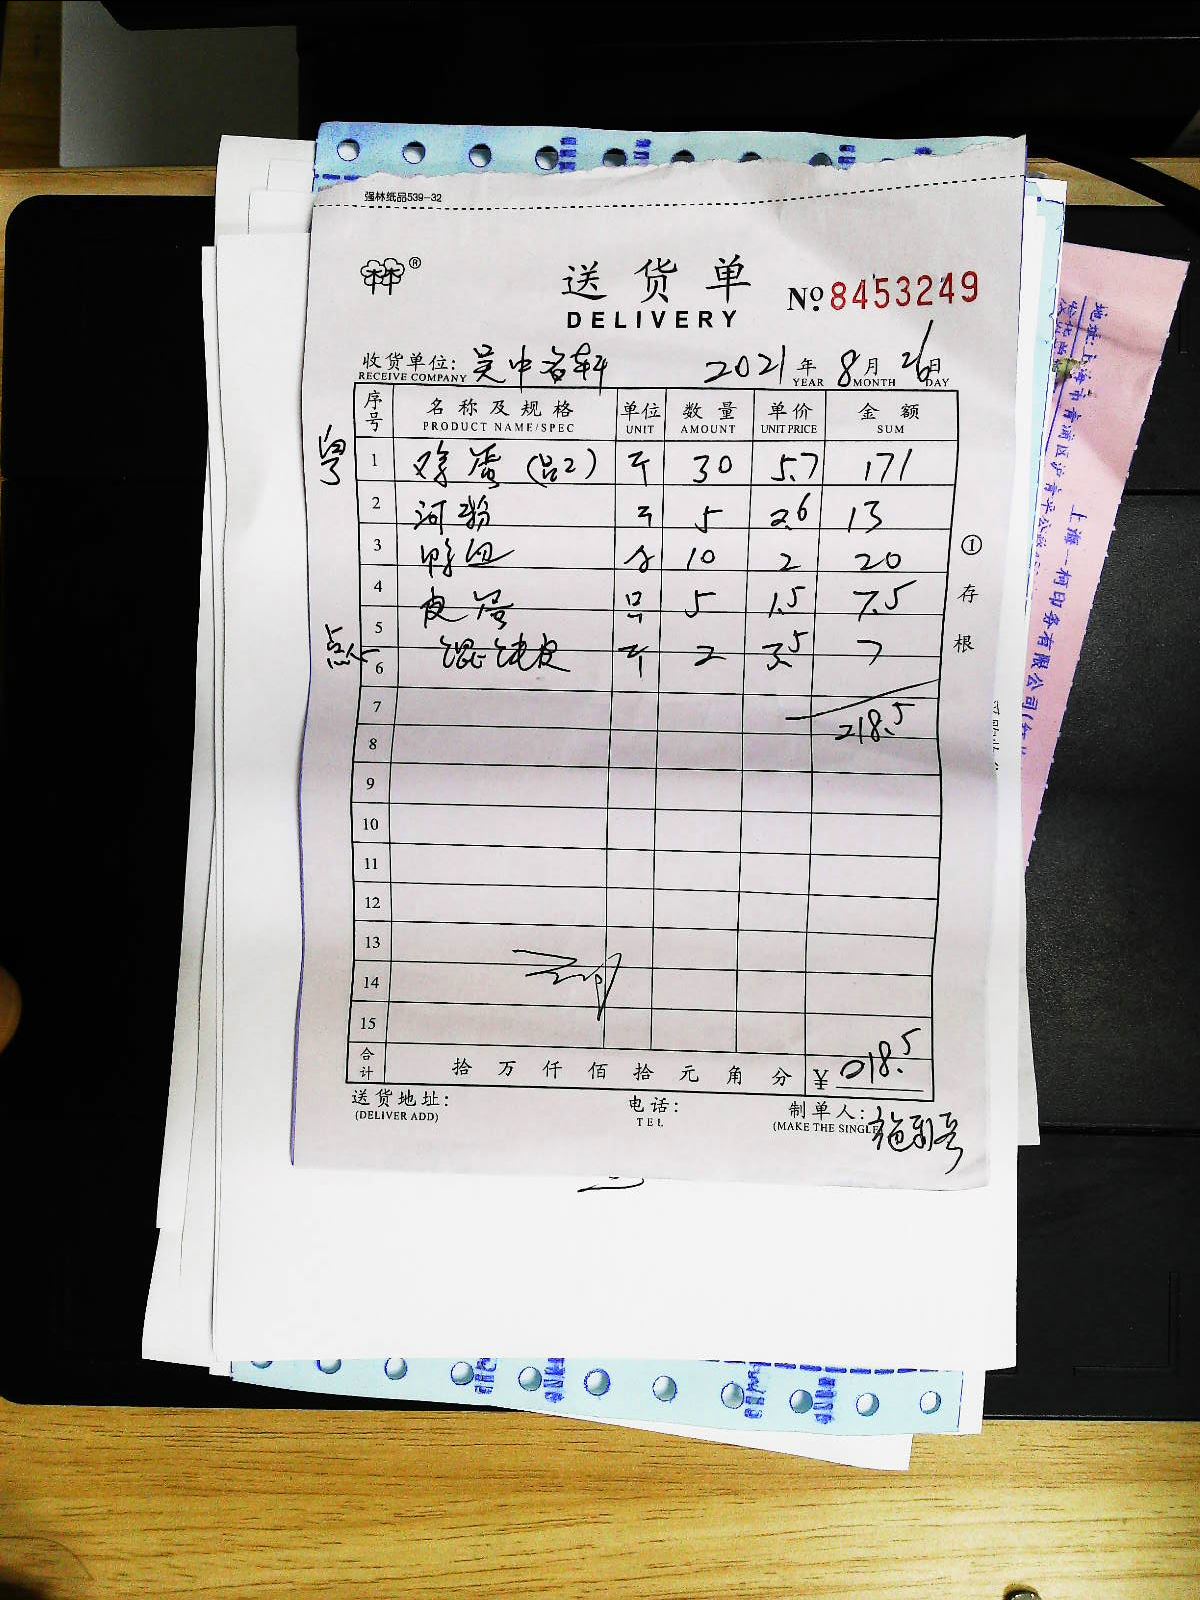 强林纸品539-32
送货单
№ 8453249
DELIVERY
收货单位: 吴中名轩 2021年8月26日
RECEIVE COMPANY YEAR MONTH DAY
序号 名称及规格 单位 数量 单价 金额
PRODUCT NAME/SPEC UNIT AMOUNT UNIT PRICE SUM
粤 1 鸡蛋 30 5.7 171
2 河粉 5 2.6 13
3 鸭血 10 2 20
4 皮蛋 只 5 1.5 7.5
点心 5 馄饨皮 2 3.5 7
6
7 218.5
8
9
10
11
12
13
14
15
合计 拾 万 仟 佰 拾 元 角 分 ¥ 218.5
送货地址: 电话: 制单人:
(DELIVER ADD) TEL (MAKE THE SINGLE
①存根
地址:上海市青浦区沪青平公路
上海一柯印务有限公司